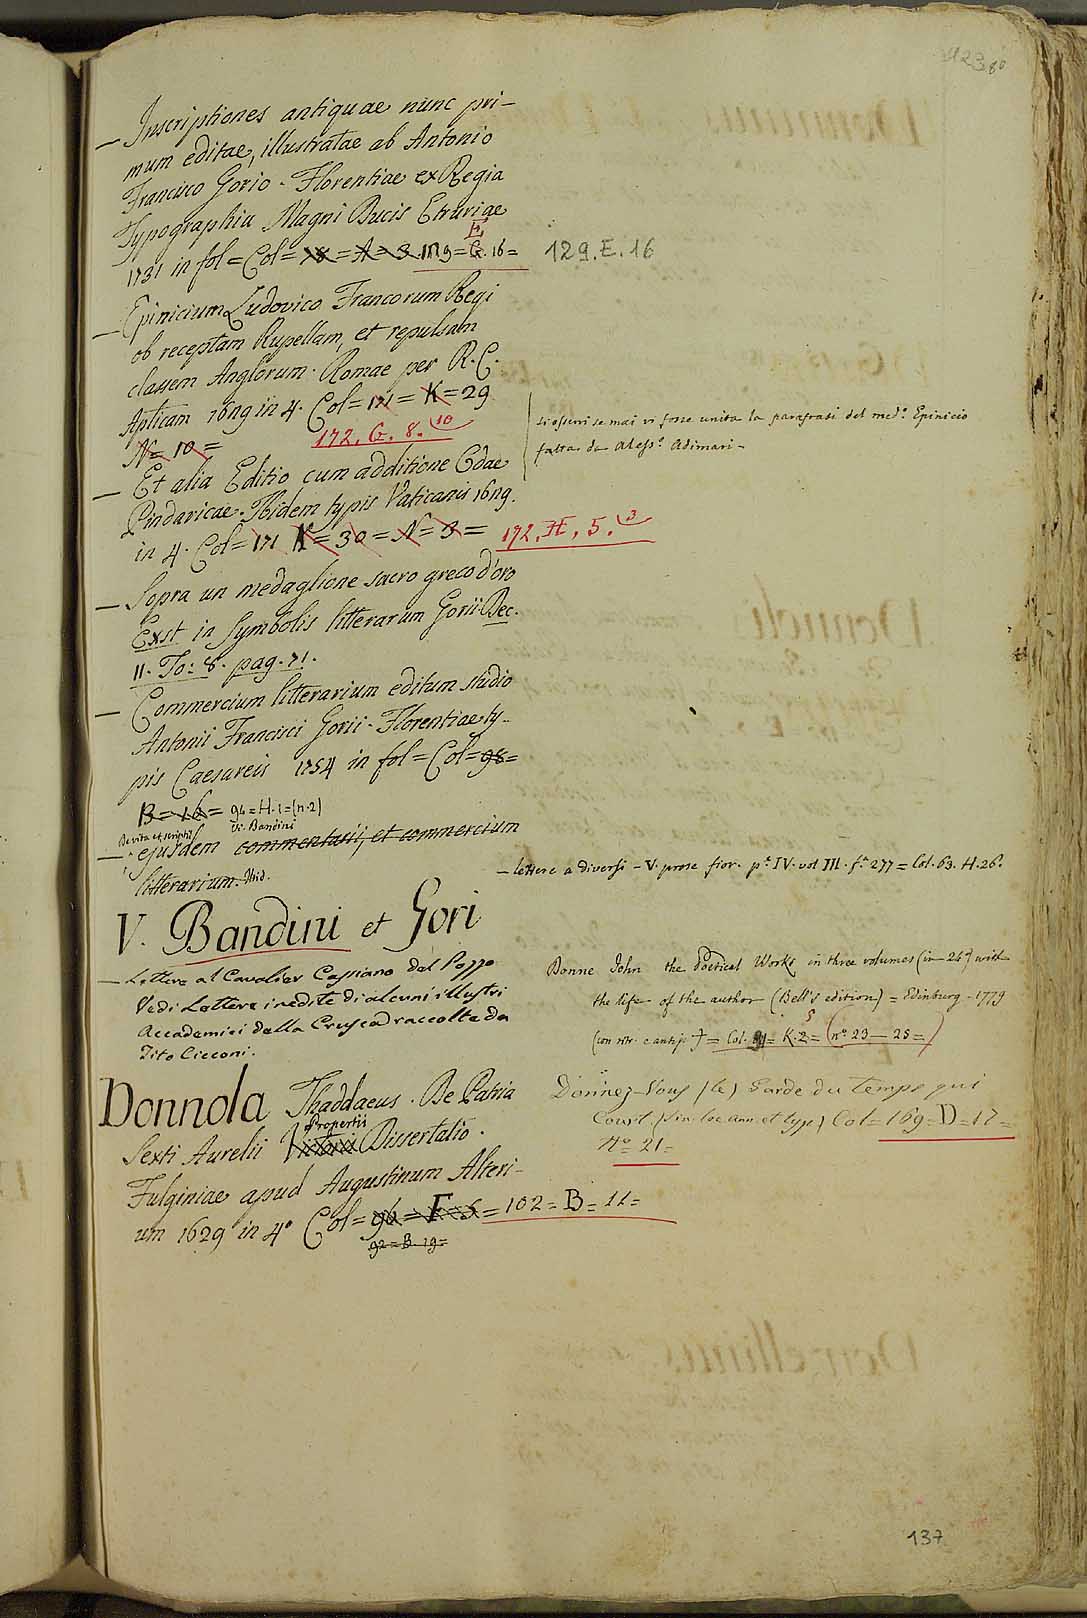 — Inscriptiones antiquae nunc pri-
mum editae, illustratae ab Antonio
Francisco Gorio. Florentiae ex Regia
Typographia Magni Ducis Etruriae
E
1731 in fol = Col = = A = 3. 129 = G. 16 =
129. E. 16
— Epinicium Ludovico Francorum Regi
ob receptam Rupellam, et repulsam
classem Anglorum. Romae per R. C.
Apticam 1629 in 4. Col = 171 = K = 29
N = 10 =
172. G. 8. 10
si osservi se mai vi fosse unita la parafrasi del med.º Epinicio
fatta da Aless.º Adimari —
— Et alia Editio cum additione Odae
Pindaricae. Ibidem typis Vaticanis 1629.
in 4. Col = 171 K = 30 = N = 3 = 172. H. 5. 3
— Sopra un medaglione sacro greco d'oro
Exst in Symbolis litterarum Gorii Dec.
II. To: 8. pag. 71.
— Commercium litterarium editum studio
Antonii Francisci Gorii. Florentiae ty-
pis Caesareis 1754 in fol = Col = 98 =
B = 16 = 94 = H. 1 = (n. 2)
De vita et scriptis V. Bandini
— ejusdem commentarii, et commercium
litterarium. Ibid.
— lettere a diversi — V. prose fior. p.e IV. vol III. f.a 277 = Col. 63. H. 26.
V. Bandini et Gori
— Lettere al Cavalier Cassiano dal Pozzo
Vedi Lettere inedite di alcuni illustri
Accademici della Crusca raccolte da
Tito Cicconi.
Donne John the Poetical Works in three volumes (in 24º) with
the life of the author (Bell's edition) = Edinburg. 1779
5
(con ritr. e antip.) = Col. = K. 2 = (nº. 23 — 25 =)
Donnola Thaddaeus. De Patria
Propertii
Sexti Aurelii Dissertatio.
Fulginiae apud Augustinum Alteri-
um 1629 in 4º Col = 96 = F = 5 = 102 = B = 11 =
92 = B. 19 =
Donnez-Vous (le) Garde du temps qui
Court (sin loc ann et typ) Col = 169 = D = 17 =
Nº = 21 =
137